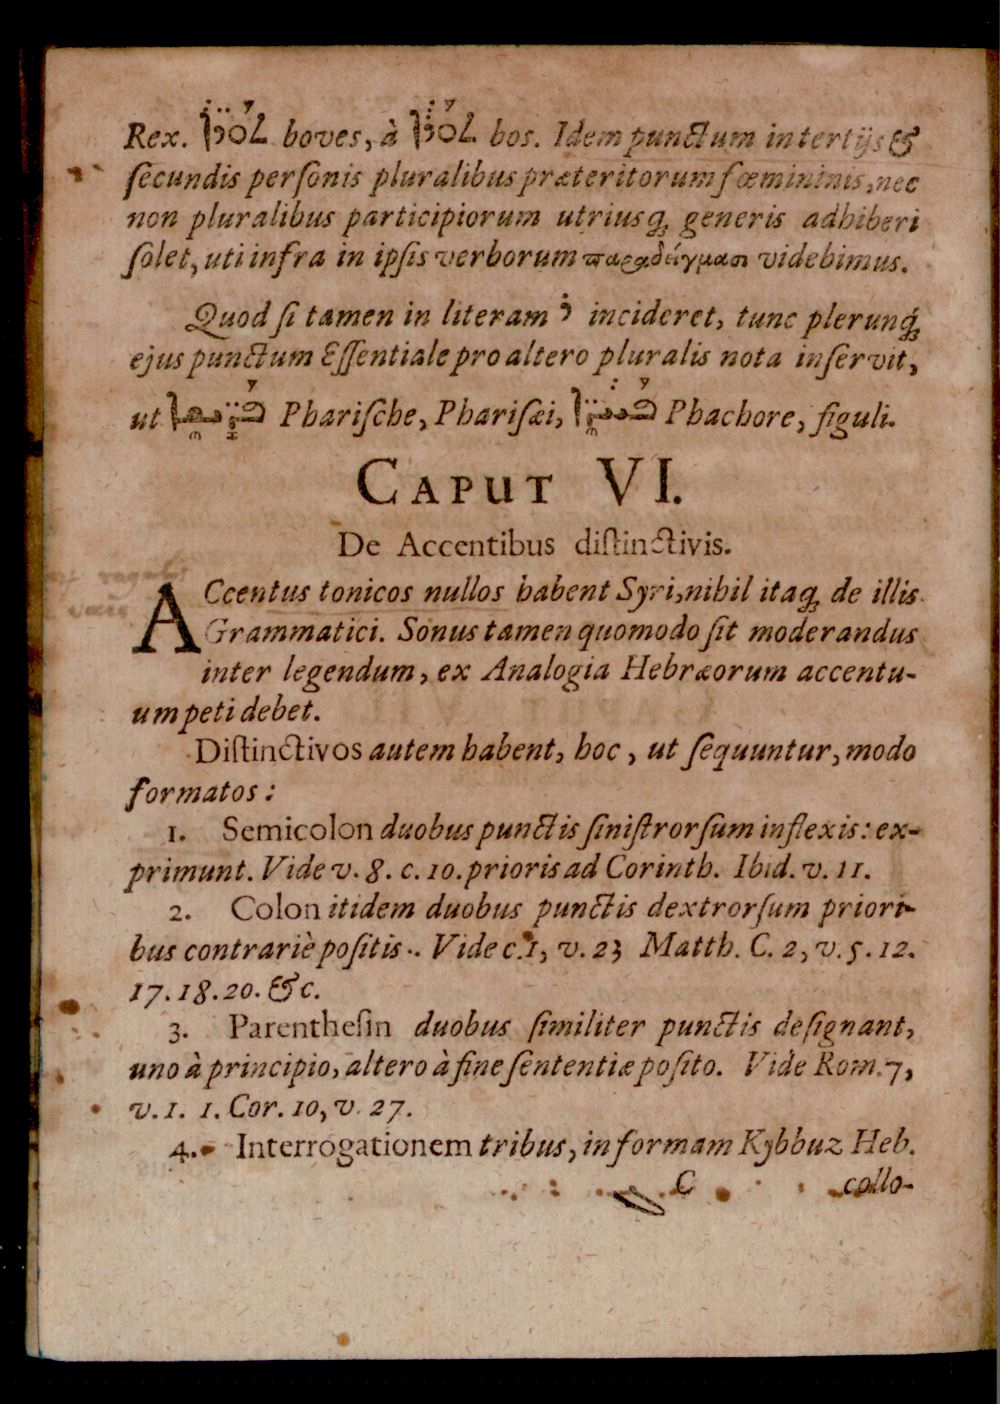 Rex. ܬܘܪ̈ܐ boves, à ܬܘܪܐ bos. Idem punctum in tertijs &
ſecundis perſonis pluralibus præteritorum fœmininis, nec
non pluralibus participiorum utriusq́; generis adhiberi
ſolet, uti infra in ipſis verborum παραδείγμασι videbimus.
Quod ſi tamen in literam ܪ incideret, tunc plerunq́;
ejus punctum Eſſentiale pro altero pluralis nota inſervit,
ut ܦܪ̈ܝܫܐ Phariſche, Phariſæi, ܦܚܪ̈ܐ Phachore, figuli.
CAPUT VI.
De Accentibus diſtinctivis.
ACcentus tonicos nullos habent Syri, nihil itaq́; de illis
Grammatici. Sonus tamen quomodo ſit moderandus
inter legendum, ex Analogia Hebræorum accentu-
um peti debet.
Diſtinctivos autem habent, hoc, ut ſequuntur, modo
formatos :
1. Semicolon duobus punctis ſiniſtrorſum inflexis : ex-
primunt. Vide v. 8. c. 10. prioris ad Corinth. Ibid. v. 11.
2. Colon itidem duobus punctis dextrorſum priori-
bus contrariè poſitis ·. Vide c. 1, v. 23 Matth. C. 2, v. 5. 12.
17. 18. 20. &c.
3. Parentheſin duobus ſimiliter punctis deſignant,
uno à principio, altero à fine ſententiæ poſito. Vide Rom. 7,
v. 1. 1. Cor. 10, v. 27.
4. Interrogationem tribus, in formam Kybbuz Heb.
C collo-